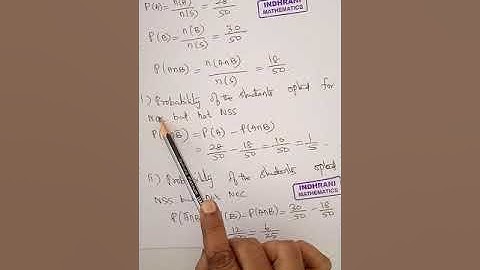 P(A) = n(A)/n(S) = 28/50
INDHRANI
MATHEMATICS
P(B) = n(B)/n(S) = 30/50
P(A∩B) = n(A∩B)/n(S) = 18/50
i.) Probability of the students opted for
but not NSS
B) = P(A) - P(A∩B)
= 28/50 - 18/50 = 10/50 = 1/5.
ii.) Probability of the students opted
INDHRANI
MATHEMATICS
NSS but not NCC
(B) - P(A∩B) = 30/50 - 18/50
12/50 = 6/25